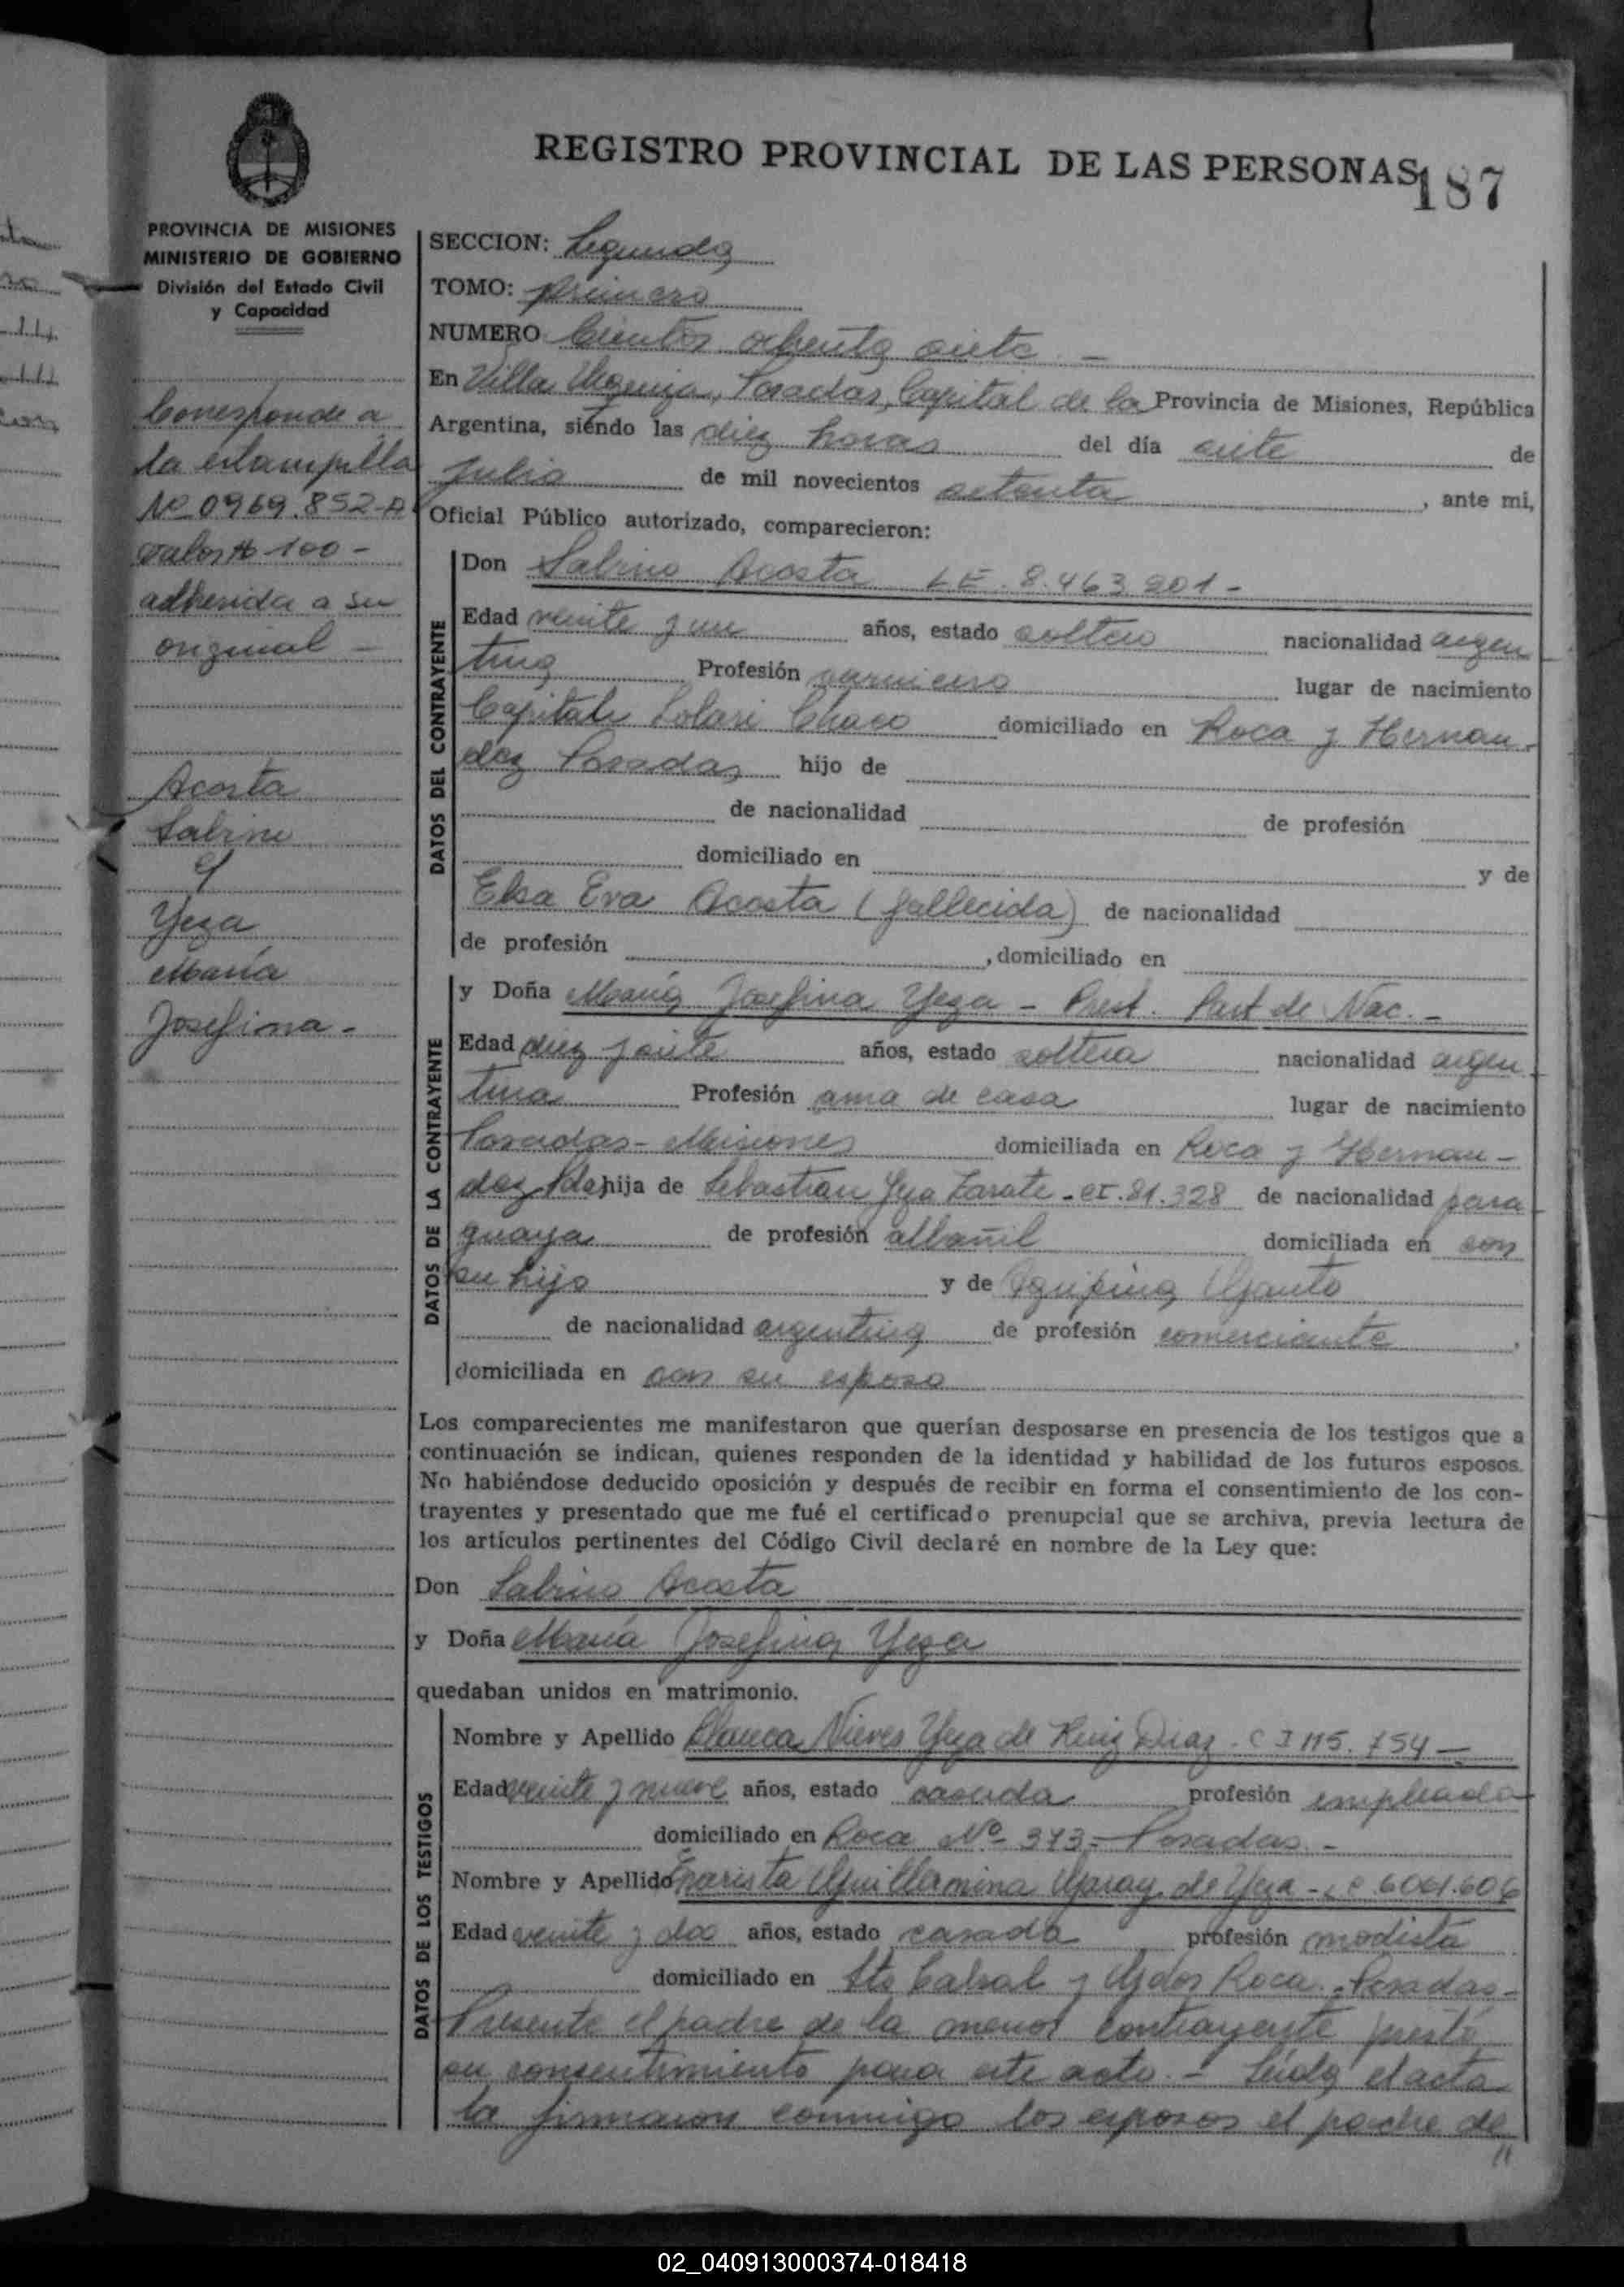 REGISTRO PROVINCIAL DE LAS PERSONAS
187
PROVINCIA DE MISIONES
MINISTERIO DE GOBIERNO
División del Estado Civil
y Capacidad
Corresponde a
la estampilla
Nº 0969.852-A
valor $ 100-
adherida a su
original -
Acosta
Sabino
y
Yeza
María
Josefina-
SECCION: Segunda
TOMO: primero
NUMERO Cientos ochenta siete -
En Villa Urquiza, Posadas, Capital de la Provincia de Misiones, República
Argentina, siendo las diez horas del día siete de
Julio de mil novecientos setenta, ante mi,
Oficial Público autorizado, comparecieron:
DATOS DEL CONTRAYENTE
Don Sabino Acosta LE. 8.463.201-
Edad veinte y un años, estado soltero nacionalidad argen
tina Profesión carnicero lugar de nacimiento
Capitan Solari Chaco domiciliado en Roca y Hernan-
dez Posadas hijo de
de nacionalidad de profesión
domiciliado en y de
Elsa Eva Acosta (fallecida) de nacionalidad
de profesión , domiciliado en
DATOS DE LA CONTRAYENTE
y Doña María Josefina Yeza - Prest. Part de Nac. -
Edad diez y siete años, estado soltera nacionalidad argen
tina Profesión ama de casa lugar de nacimiento
Posadas-Misiones domiciliada en Roca y Hernan-
dez Pdas hija de Sebastian Yeza Zarate - CI. 81.328 de nacionalidad para
guaya de profesión albañil domiciliada en con
su hija y de Agripina
de nacionalidad argentina de profesión comerciante,
domiciliada en con su esposo
Los comparecientes me manifestaron que querían desposarse en presencia de los testigos que a
continuación se indican, quienes responden de la identidad y habilidad de los futuros esposos.
No habiéndose deducido oposición y después de recibir en forma el consentimiento de los con-
trayentes y presentado que me fué el certificado prenupcial que se archiva, previa lectura de
los artículos pertinentes del Código Civil declaré en nombre de la Ley que:
Don Sabino Acosta
y Doña María Josefina Yeza
quedaban unidos en matrimonio.
DATOS DE LOS TESTIGOS
Nombre y Apellido Blanca Nieves Yeza de Ruiz Diaz - C I 115.754 -
Edad veinte y nueve años, estado casada profesión empleada
domiciliado en Roca Nº 373- Posadas -
Nombre y Apellido Guillermina de Yeza - LC 6061.606
Edad veinte y dos años, estado casada profesión modista
domiciliado en Sto Cabral y Roca - Posadas-
Presente el padre de la menor contrayente prestó
su consentimiento para este acto. - Leída el acta
la firmaron conmigo los esposos el padre de
"
02_040913000374-018418